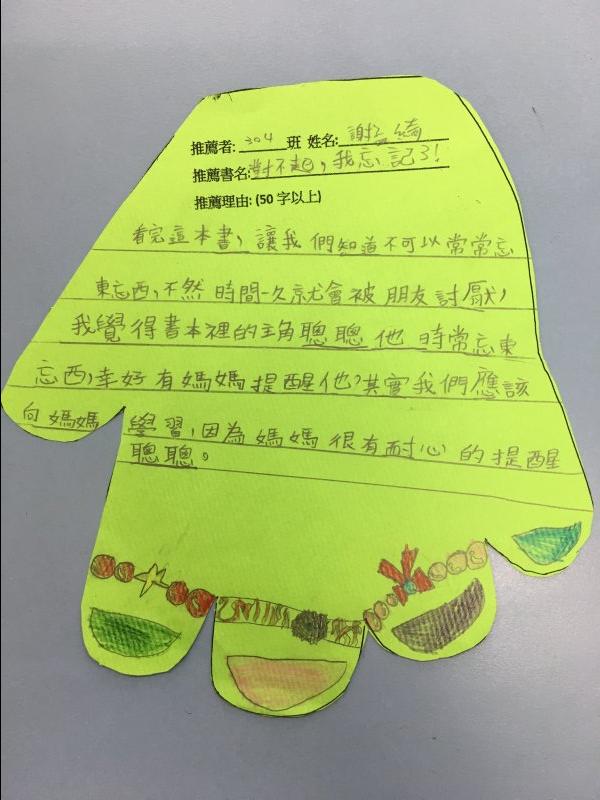 推薦者: 304 班 姓名: 謝 綺
推薦書名: 對不起，我忘記了!
推薦理由: (50 字以上)
看完這本書，讓我們知道不可以常常忘
東忘西，不然時間一久就會被朋友討厭，
我覺得書本裡的主角聰聰他時常忘東
忘西，幸好有媽媽提醒他，其實我們應該
向媽媽學習，因為媽媽很有耐心的提醒
聰聰。